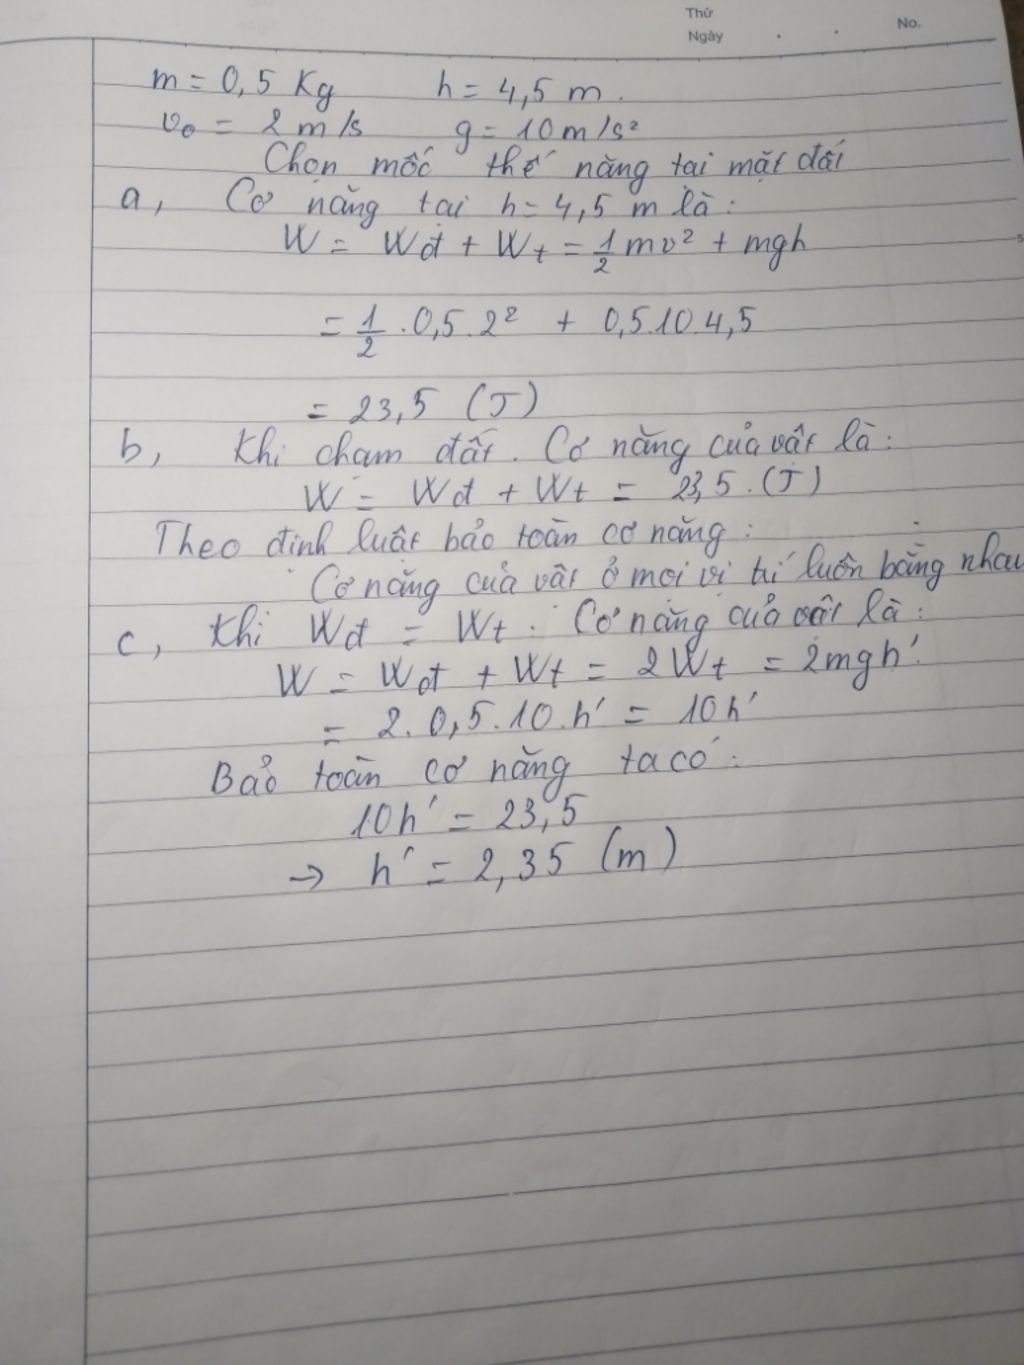 Thứ
Ngày . . No.
m = 0,5 Kg h = 4,5 m.
v₀ = 2 m/s g = 10 m/s²
Chọn mốc thế năng tại mặt đất
a, Cơ năng tại h = 4,5 m là:
W = Wđ + Wt = 1/2 mv² + mgh
= 1/2 . 0,5 . 2² + 0,5.10.4,5
= 23,5 (J)
b, Khi chạm đất. Cơ năng của vật là:
W = Wđ + Wt = 23,5 . (J)
Theo định luật bảo toàn cơ năng:
Cơ năng của vật ở mọi vị trí luôn bằng nhau
c, Khi Wđ = Wt. Cơ năng của vật là:
W = Wđ + Wt = 2Wt = 2mgh'.
= 2. 0,5.10.h' = 10h'
Bảo toàn cơ năng ta có:
10h' = 23,5
→ h' = 2,35 (m)